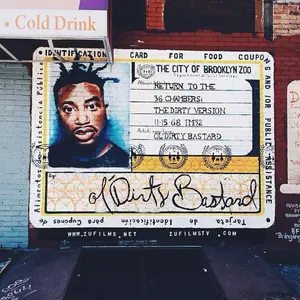 Cold Drink
IDENTIFICATION CARD FOR FOOD COUPONS
AND FOR PUBLIC ASSISTANCE
THE CITY OF BROOKLYN ZOO
RETURN TO THE
36 CHAMBERS:
THE DIRTY VERSION
11·15·68
OL' DIRTY BASTARD
By:
Ol Dirty Bastard
Tarjeta de Identificación para Cupones de
Alimentos Asistencia Pública
WWW.ZUFILMS.NET ZUFILMSTV.COM